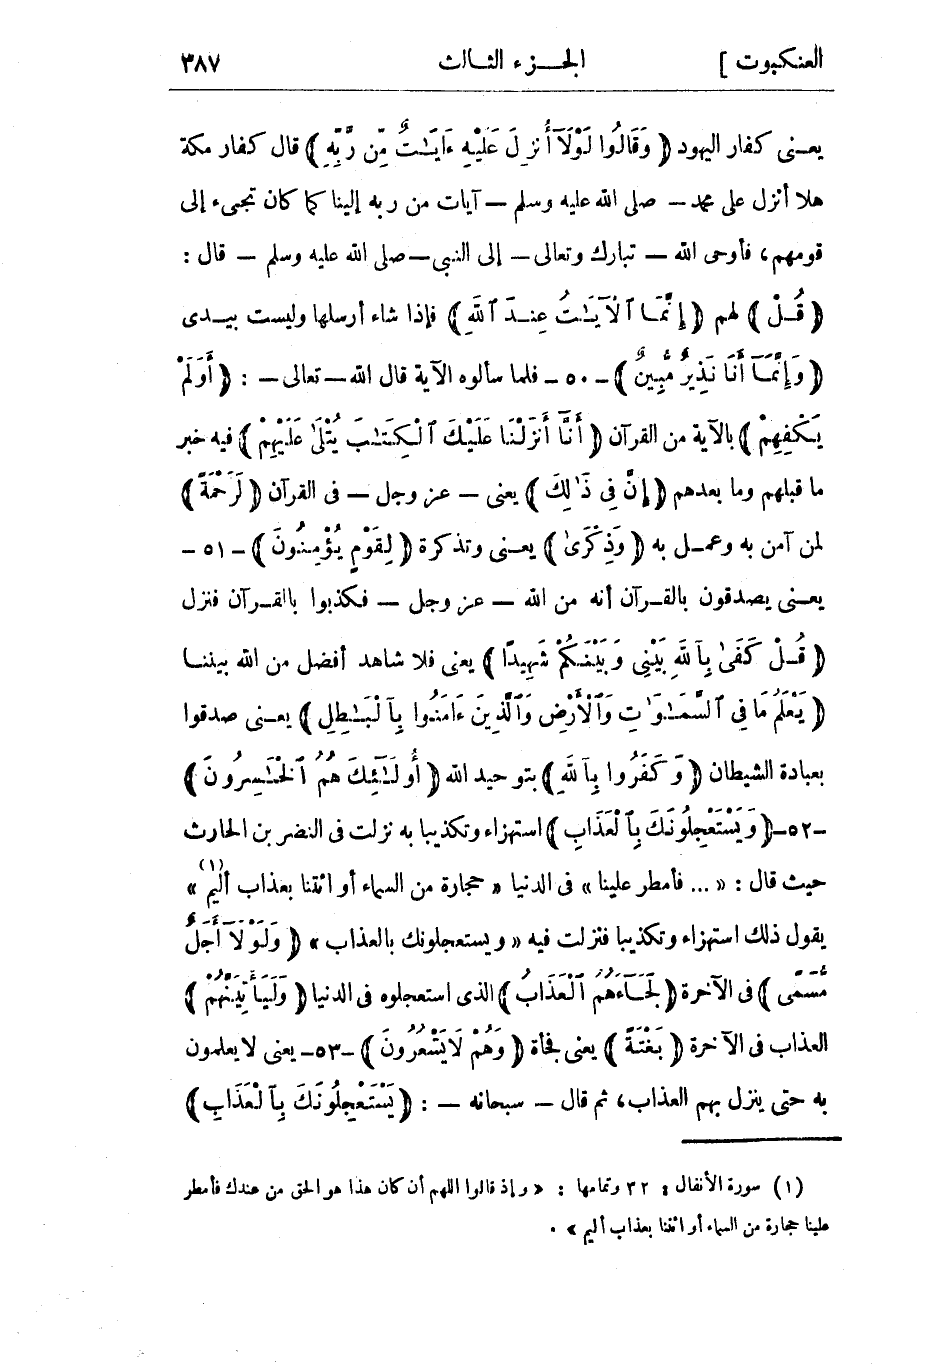 العنكبوت ] الجـــزء الثـالث ٣٨٧
يعـنى كفار اليهود ﴿ وَقَالُوا لَوْلَآ أُنزِلَ عَلَيْهِ ءَايَـٰتٌ مِّن رَّبِّهِ ﴾ قال كفار مكة
هلا أنزل على محمد — صلى الله عليه وسلم — آيات من ربه إلينا كما كان تجىء إلى
قومهم، فأوحى الله — تبارك وتعالى — إلى النبى — صلى الله عليه وسلم — قال :
﴿ قُـلْ ﴾ لهم ﴿ إِنَّمَـا ٱلْآيَـٰتُ عِنـدَ ٱللَّهِ ﴾ فإذا شاء أرسلها وليست بيـدى
﴿ وَإِنَّمَـآ أَنَا نَذِيرٌ مُّبِينٌ ﴾ – ٥٠ – فلما سألوه الآية قال الله — تعالى — : ﴿ أَوَلَمْ
يَـكْفِهِمْ ﴾ بالآية من القرآن ﴿ أَنَّآ أَنزَلْنَا عَلَيْكَ ٱلْكِتَـٰبَ يُتْلَىٰ عَلَيْهِمْ ﴾ فيه خبر
ما قبلهم وما بعدهم ﴿ إِنَّ فِى ذَٰلِكَ ﴾ يعنى — عز وجل — فى القرآن ﴿ لَرَحْمَةً ﴾
لمن آمن به وعمـل به ﴿ وَذِكْرَىٰ ﴾ يعـنى وتذكرة ﴿ لِقَوْمٍ يُؤْمِنُونَ ﴾ – ٥١ –
يعـنى يصدقون بالقـرآن أنه من الله — عز وجل — فكذبوا باالقـرآن فنزل
﴿ قُـلْ كَفَىٰ بِٱللَّهِ بَيْنِى وَبَيْنَـكُمْ شَهِيدًا ﴾ يعنى فلا شاهد أفضل من الله بيننـا
﴿ يَعْلَمُ مَا فِى ٱلسَّمَـٰوَٰتِ وَٱلْأَرْضِ وَٱلَّذِينَ ءَامَنُوا بِٱلْبَـٰطِلِ ﴾ يعـنى صدقوا
بعبادة الشيطان ﴿ وَكَفَرُوا بِٱللَّهِ ﴾ بتوحيد الله ﴿ أُولَـٰٓئِكَ هُمُ ٱلْخَـٰسِرُونَ ﴾
– ٥٢ – ﴿ وَيَسْتَعْجِلُونَكَ بِٱلْعَذَابِ ﴾ استهزاء وتكذيبا به نزلت فى النضر بن الحارث
حيث قال : « ... فأمطر علينا » فى الدنيا « حجارة من السماء أو ائتنا بعذاب أليم » (١)
يقول ذلك استهزاء وتكذيبا فنزلت فيه « ويستعجلونك بالعذاب » ﴿ وَلَوْلَآ أَجَلٌ
مُّسَمًّى ﴾ فى الآخرة ﴿ لَجَـآءَهُمُ ٱلْعَذَابُ ﴾ الذى استعجلوه فى الدنيا ﴿ وَلَيَأْتِيَنَّهُم ﴾
العذاب فى الآخرة ﴿ بَغْتَةً ﴾ يعنى فجأة ﴿ وَهُمْ لَا يَشْعُرُونَ ﴾ – ٥٣ – يعنى لا يعلمون
به حتى ينزل بهم العذاب، ثم قال — سبحانه — : ﴿ يَسْتَعْجِلُونَكَ بِٱلْعَذَابِ ﴾
(١) سورة الأنفال : ٣٢ وتمامها : « وإذ قالوا اللهم أن كان هذا هو الحق من عندك فأمطر
علينا حجارة من السماء أو ائتنا بعذاب أليم » .